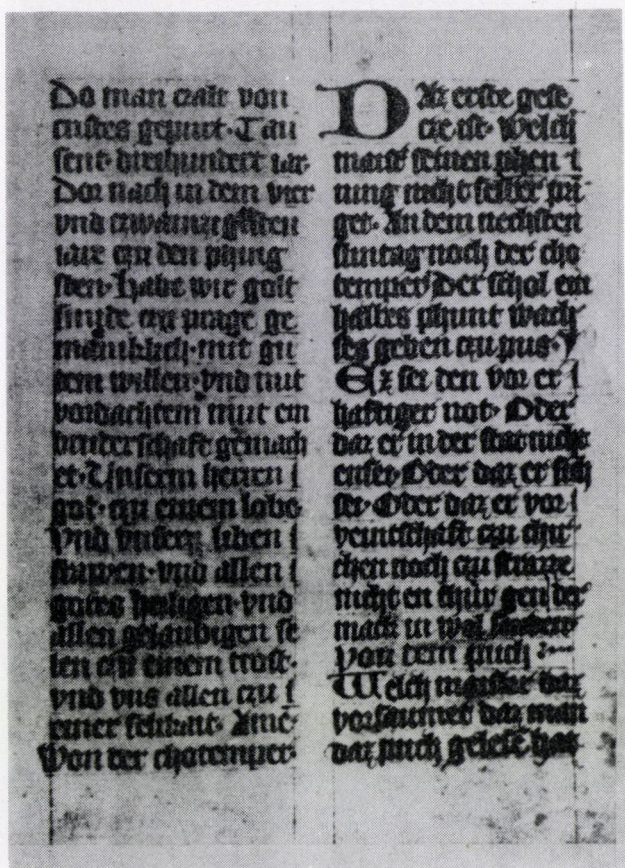 Do man czalt von
cristes gepurt· Tau
sent· drewhundert iar·
Dor nach in dem vier
vnd czwanczigisten
iare czu den phing
sten· habe wir golt
smyde czu prage ge
mainklich· mit gu
tem willen· vnd mit
vordachtem mut ein
bruderschaft gemach
et· Unserm herren
got· czu einem lobe·
Vnd vnsern liben
frawen· vnd allen
gotes heiligen· vnd
allen gelaubigen se
len czu einem trost·
vnd vns allen czu
einer selikait· Ame·
Von der chotemper·
Daz erste gese
cze ist· Welch
maister seinen phen
ning nicht selber prin
get· An dem nechsten
suntag noch der cho
temper Der schol ein
halbes phunt wach
ses geben czu pus·
Ez sei den vor er
haftiger not· Oder
daz er in der stat nicht
ensey Oder daz er sich
sei· Oder daz er vor
veintschaft czu chir
chen noch czu strazze
nicht en thur gen der
mack in wol
von dem puch :~
Welch maister daz
vorsaumet daz man
daz puch gelest hat